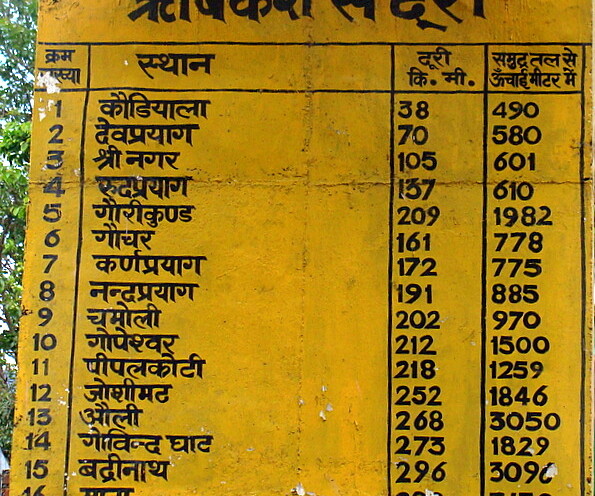 ऋषिकेश से दूरी
क्रम संख्या स्थान दूरी कि. मी. समुद्र तल से ऊँचाई मीटर में
1 कौडियाला 38 490
2 देवप्रयाग 70 580
3 श्रीनगर 105 601
4 रुद्रप्रयाग 137 610
5 गौरीकुण्ड 209 1982
6 गौचर 161 778
7 कर्णप्रयाग 172 775
8 नन्दप्रयाग 191 885
9 चमोली 202 970
10 गोपेश्वर 212 1500
11 पीपलकोटी 218 1259
12 जोशीमठ 252 1846
13 औली 268 3050
14 गोविन्द घाट 273 1829
15 बद्रीनाथ 296 3096
16